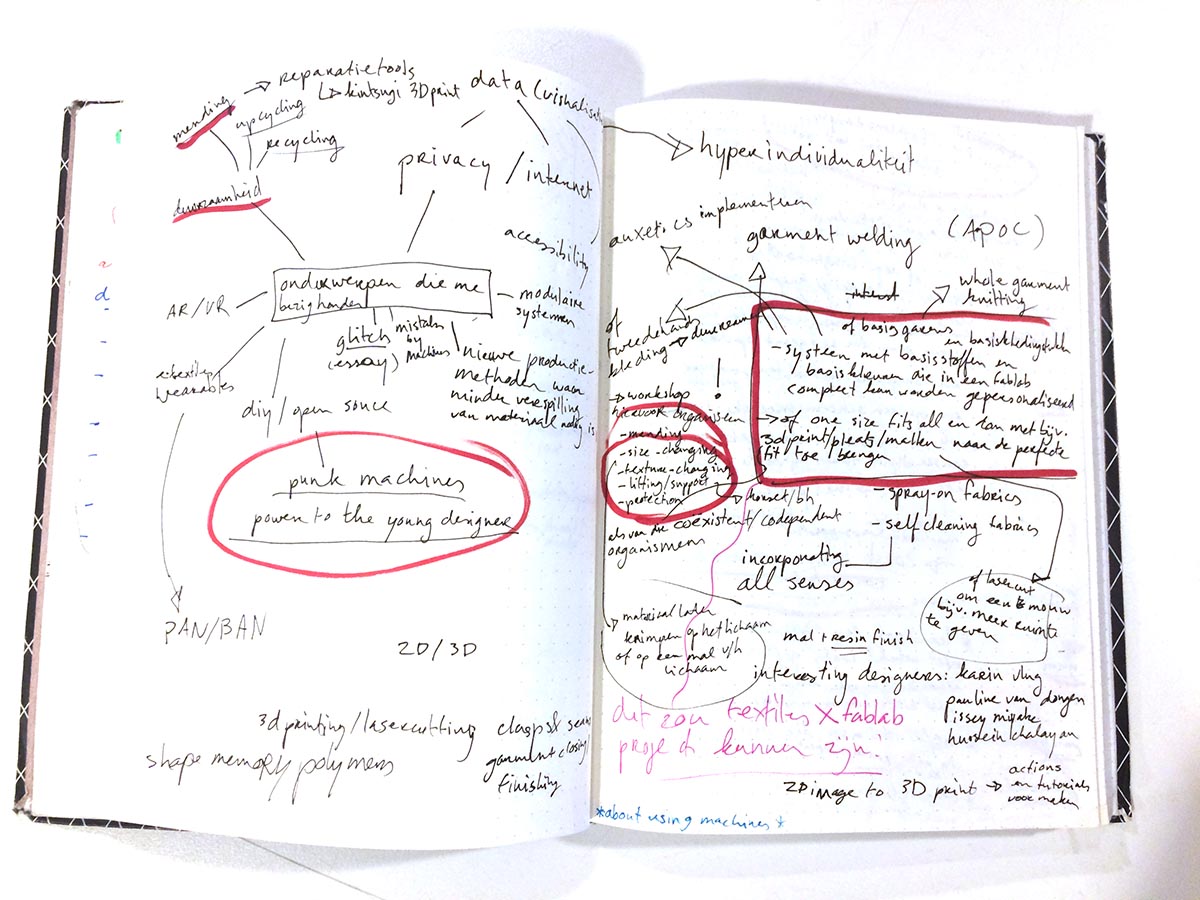 mending
→ reparatietools
↳ kintsugi 3D print
upcycling
recycling
duurzaamheid
data (visualisat
privacy / internet
accessibility
onderwerpen die me
bezighouden
AR/VR
modulaire
systemen
glitch
(essay)
mistakes
by
machines
nieuwe productie-
methoden waar
minder verspilling
van materiaal nodig is
e-textiles
wearables
diy/open source
punk machines
power to the young designer
PAN/BAN
2D/3D
3d printing/lasercutting
shape memory polymers
garment closing
finishing
hyperindividualiteit
auxetics implementeren
garment welding
(APOC)
whole garment
knitting
of
tweedehands
kleding → deconstrueren
!
→ workshop
hiervoor organiseren
- mending
- size-changing
- texture-changing
- lifting/support
- protection
→ korset/bh
of basisgarens
en basiskledingstukken
- systeem met basisstoffen en
basiskleuren die in een fablab
compleet kan worden gepersonaliseerd
→ of one size fits all en dan met bijv.
3d print/pleats/matten naar de perfecte
fit toe brengen
- spray-on fabrics
- selfcleaning fabrics
als van die coëxistent/codependent
organismen
incorporating
all senses
of lasercut
om een mouw
bijv. meer ruimte
te geven
→ materiaal laten
krimpen op het lichaam
of op een mal v/h
lichaam
mal + resin finish
interesting designers: karin vlug
pauline van dongen
issey miyake
hussein chalayan
dit zou textiles X fablab
project kunnen zijn!
2D image to 3D print →
actions
en tutorials
voor maken
*about using machines*